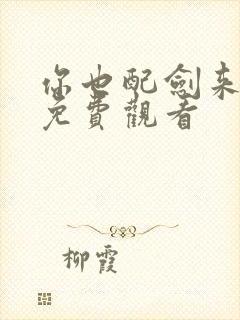 你也配劍来
免費觀看
柳霞